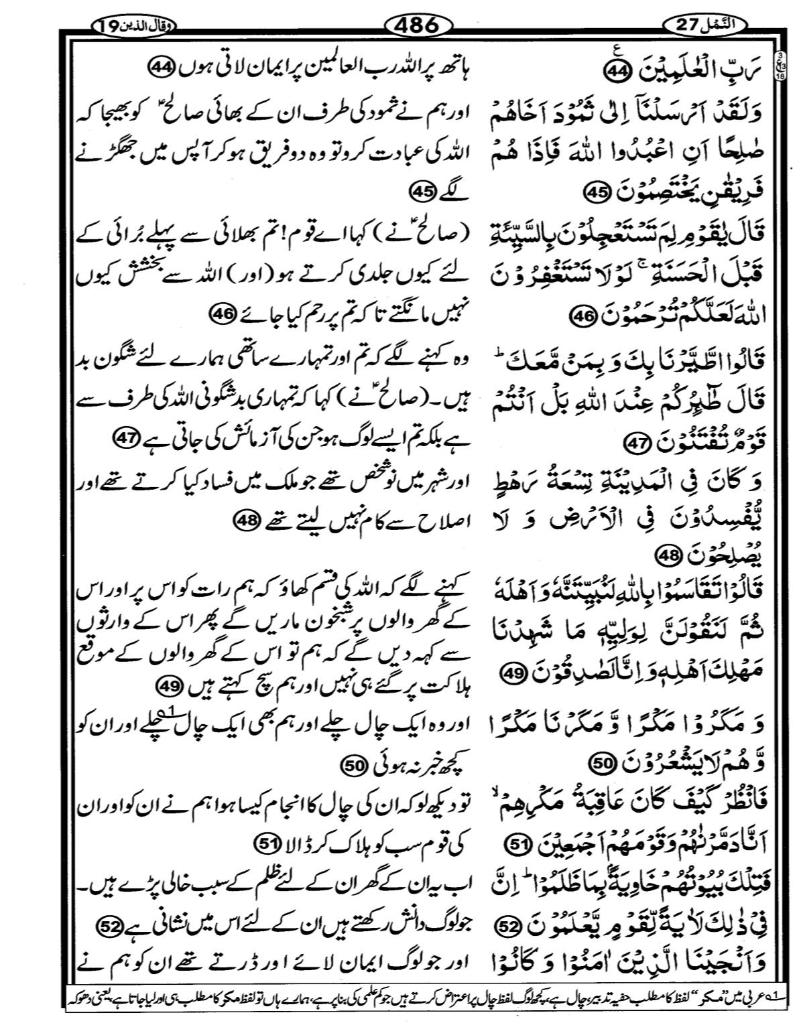 النَّمْل 27
486
وقال الذین 19
رَبِّ الْعٰلَمِيْنَ ﴿44﴾
وَلَقَدْ اَرْسَلْنَاۤ اِلٰى ثَمُوْدَ اَخَاهُمْ
صٰلِحًا اَنِ اعْبُدُوا اللّٰهَ فَاِذَا هُمْ
فَرِيْقٰنِ يَخْتَصِمُوْنَ ﴿45﴾
قَالَ يٰقَوْمِ لِمَ تَسْتَعْجِلُوْنَ بِالسَّيِّئَةِ
قَبْلَ الْحَسَنَةِ ۚ لَوْ لَا تَسْتَغْفِرُوْنَ
اللّٰهَ لَعَلَّكُمْ تُرْحَمُوْنَ ﴿46﴾
قَالُوا اطَّيَّرْنَا بِكَ وَ بِمَنْ مَّعَكَ ؕ
قَالَ طٰٓىِٕرُكُمْ عِنْدَ اللّٰهِ بَلْ اَنْتُمْ
قَوْمٌ تُفْتَنُوْنَ ﴿47﴾
وَ كَانَ فِى الْمَدِيْنَةِ تِسْعَةُ رَهْطٍ
يُّفْسِدُوْنَ فِى الْاَرْضِ وَ لَا
يُصْلِحُوْنَ ﴿48﴾
قَالُوْا تَقَاسَمُوْا بِاللّٰهِ لَنُبَيِّتَنَّهٗ وَ اَهْلَهٗ
ثُمَّ لَنَقُوْلَنَّ لِوَلِيِّهٖ مَا شَهِدْنَا
مَهْلِكَ اَهْلِهٖ وَ اِنَّا لَصٰدِقُوْنَ ﴿49﴾
وَ مَكَرُوْا مَكْرًا وَّ مَكَرْنَا مَكْرًا
وَّ هُمْ لَا يَشْعُرُوْنَ ﴿50﴾
فَانْظُرْ كَيْفَ كَانَ عَاقِبَةُ مَكْرِهِمْ ۙ
اَنَّا دَمَّرْنٰهُمْ وَ قَوْمَهُمْ اَجْمَعِيْنَ ﴿51﴾
فَتِلْكَ بُيُوْتُهُمْ خَاوِيَةًۢ بِمَا ظَلَمُوْا ؕ اِنَّ
فِىْ ذٰلِكَ لَاٰيَةً لِّقَوْمٍ يَّعْلَمُوْنَ ﴿52﴾
وَ اَنْجَيْنَا الَّذِيْنَ اٰمَنُوْا وَ كَانُوْا
ہاتھ پر اللہ رب العالمین پر ایمان لاتی ہوں ﴿44﴾
اور ہم نے ثمود کی طرف ان کے بھائی صالحؑ کو بھیجا کہ
اللہ کی عبادت کرو تو وہ دو فریق ہو کر آپس میں جھگڑنے
لگے ﴿45﴾
(صالحؑ نے) کہا اے قوم! تم بھلائی سے پہلے بُرائی کے
لئے کیوں جلدی کرتے ہو (اور) اللہ سے بخشش کیوں
نہیں مانگتے تاکہ تم پر رحم کیا جائے ﴿46﴾
وہ کہنے لگے کہ تم اور تمہارے ساتھی ہمارے لئے شگون بد
ہیں۔ (صالحؑ نے) کہا کہ تمہاری بدشگونی اللہ کی طرف سے
ہے بلکہ تم ایسے لوگ ہو جن کی آزمائش کی جاتی ہے ﴿47﴾
اور شہر میں نو شخص تھے جو ملک میں فساد کیا کرتے تھے اور
اصلاح سے کام نہیں لیتے تھے ﴿48﴾
کہنے لگے کہ اللہ کی قسم کھاؤ کہ ہم رات کو اس پر اور اس
کے گھر والوں پر شبخون ماریں گے پھر اس کے وارثوں
سے کہہ دیں گے کہ ہم تو اس کے گھر والوں کے موقع
ہلاکت پر گئے ہی نہیں اور ہم سچ کہتے ہیں ﴿49﴾
اور وہ ایک چال چلے اور ہم بھی ایک چال ۱؎ چلے اور ان کو
کچھ خبر نہ ہوئی ﴿50﴾
تو دیکھ لو کہ ان کی چال کا انجام کیسا ہوا ہم نے ان کو اور ان
کی قوم سب کو ہلاک کر ڈالا ﴿51﴾
اب یہ ان کے گھر ان کے لئے ظلم کے سبب خالی پڑے ہیں۔
جو لوگ دانش رکھتے ہیں ان کے لئے اس میں نشانی ہے ﴿52﴾
اور جو لوگ ایمان لائے اور ڈرتے تھے ان کو ہم نے
۱؎ عربی میں ”مکر“ لفظ کا مطلب خفیہ تدبیر، چال ہے، کچھ لوگ لفظ چال پر اعتراض کرتے ہیں جو کم علمی کی بنا پر ہے، ہمارے ہاں تو لفظ مکر کا مطلب ہی اور لیا جاتا ہے، یعنی دھوکہ